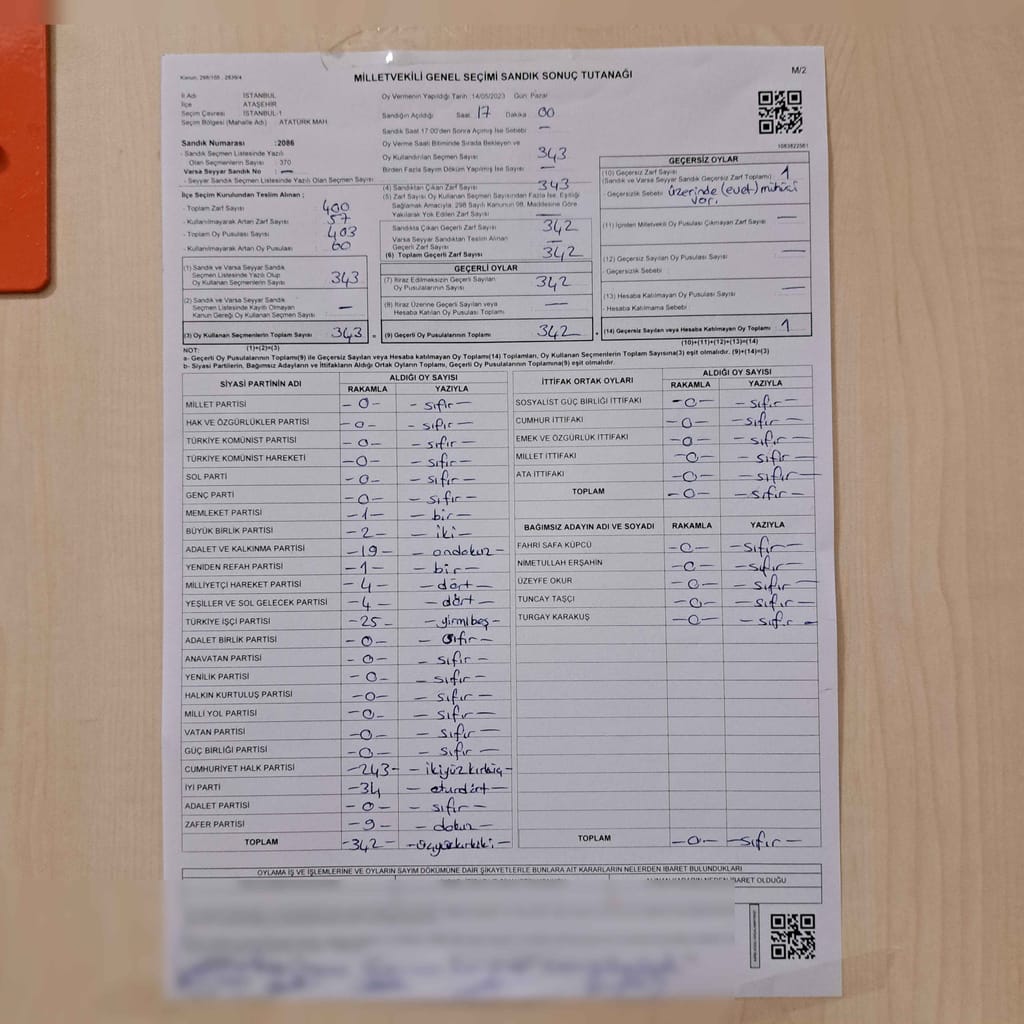 Kanun: 298/105 , 2839/4
MİLLETVEKİLİ GENEL SEÇİMİ SANDIK SONUÇ TUTANAĞI
M/2
İl Adı İSTANBUL
İlçe ATAŞEHİR
Seçim Çevresi İSTANBUL-1
Seçim Bölgesi (Mahalle Adı) : ATATÜRK MAH.
Sandık Numarası :2086
- Sandık Seçmen Listesinde Yazılı
Olan Seçmenlerin Sayısı : 370
Varsa Seyyar Sandık No : —
- Seyyar Sandık Seçmen Listesinde Yazılı Olan Seçmen Sayısı
İlçe Seçim Kurulundan Teslim Alınan ;
- Toplam Zarf Sayısı 400
- Kullanılmayarak Artan Zarf Sayısı 57
- Toplam Oy Pusulası Sayısı 403
- Kullanılmayarak Artan Oy Pusulası 60
(1) Sandık ve Varsa Seyyar Sandık
Seçmen Listesinde Yazılı Olup
Oy Kullanan Seçmenlerin Sayısı 343
(2) Sandık ve Varsa Seyyar Sandık
Seçmen Listesinde Kayıtlı Olmayan
Kanun Gereği Oy Kullanan Seçmenlerin Sayısı —
(3) Oy Kullanan Seçmenlerin Toplam Sayısı 343 =
(1)+(2)=(3)
Oy Vermenin Yapıldığı Tarih 14/05/2023 Gün: Pazar
Sandığın Açıldığı Saat 17 Dakika 00
Sandık Saat 17.00'den Sonra Açılmış İse Sebebi —
Oy Verme Saati Bitiminde Sırada Bekleyen ve
Oy Kullandırılan Seçmen Sayısı 343
Birden Fazla Sayım Döküm Yapılmış İse Sayısı —
(4) Sandıktan Çıkan Zarf Sayısı 343
(5) Zarf Sayısı Oy Kullanan Seçmen Sayısından Fazla İse, Eşitliği
Sağlamak Amacıyla, 298 Sayılı Kanunun 98. Maddesine Göre
Yakılarak Yok Edilen Zarf Sayısı —
Sandıkta Çıkan Geçerli Zarf Sayısı 342
Varsa Seyyar Sandıktan Teslim Alınan
Geçerli Zarf Sayısı —
(6) Toplam Geçerli Zarf Sayısı 342
GEÇERLİ OYLAR
(7) İtiraz Edilmeksizin Geçerli Sayılan
Oy Pusulalarının Sayısı 342
(8) İtiraz Üzerine Geçerli Sayılan veya
Hesaba Katılan Oy Pusulası Toplamı —
(9) Geçerli Oy Pusulalarının Toplamı 342 +
1083822561
GEÇERSİZ OYLAR
(10) Geçersiz Zarf Sayısı 1
(Sandık ve Varsa Seyyar Sandık Geçersiz Zarf Toplamı)
- Geçersizlik Sebebi üzerinde (evet) mühürü
var.
(11) İçinden Milletvekili Oy Pusulası Çıkmayan Zarf Sayısı —
(12) Geçersiz Sayılan Oy Pusulası Sayısı —
- Geçersizlik Sebebi
(13) Hesaba Katılmayan Oy Pusulası Sayısı —
- Hesaba Katılmama Sebebi
(14) Geçersiz Sayılan veya Hesaba Katılmayan Oy Toplamı 1
(10)+(11)+(12)+(13)=(14)
NOT:
a- Geçerli Oy Pusulalarının Toplamı(9) ile Geçersiz Sayılan veya Hesaba katılmayan Oy Toplamı(14) Toplamları, Oy Kullanan Seçmenlerin Toplam Sayısına(3) eşit olmalıdır. (9)+(14)=(3)
b- Siyasi Partilerin, Bağımsız Adayların ve İttifakların Aldığı Ortak Oyların Toplamı, Geçerli Oy Pusulalarının Toplamına(9) eşit olmalıdır.
SİYASİ PARTİNİN ADI ALDIĞI OY SAYISI
RAKAMLA YAZIYLA
MİLLET PARTİSİ -0- - sıfır -
HAK VE ÖZGÜRLÜKLER PARTİSİ -0- - sıfır -
TÜRKİYE KOMÜNİST PARTİSİ -0- - sıfır -
TÜRKİYE KOMÜNİST HAREKETİ -0- - sıfır -
SOL PARTİ -0- - sıfır -
GENÇ PARTİ -0- - sıfır -
MEMLEKET PARTİSİ -1- - bir -
BÜYÜK BİRLİK PARTİSİ -2- - iki -
ADALET VE KALKINMA PARTİSİ -19- - ondokuz -
YENİDEN REFAH PARTİSİ -1- - bir -
MİLLİYETÇİ HAREKET PARTİSİ -4- - dört -
YEŞİLLER VE SOL GELECEK PARTİSİ -4- - dört -
TÜRKİYE İŞÇİ PARTİSİ -25- - yirmibeş -
ADALET BİRLİK PARTİSİ -0- - sıfır -
ANAVATAN PARTİSİ -0- - sıfır -
YENİLİK PARTİSİ -0- - sıfır -
HALKIN KURTULUŞ PARTİSİ -0- - sıfır -
MİLLİ YOL PARTİSİ -0- - sıfır -
VATAN PARTİSİ -0- - sıfır -
GÜÇ BİRLİĞİ PARTİSİ -0- - sıfır -
CUMHURİYET HALK PARTİSİ -243- - ikiyüzkırküç -
İYİ PARTİ -34 - oturdört -
ADALET PARTİSİ -0- - sıfır -
ZAFER PARTİSİ -9- - dokuz -
TOPLAM -342- - üçyüzkırkiki -
İTTİFAK ORTAK OYLARI ALDIĞI OY SAYISI
RAKAMLA YAZIYLA
SOSYALİST GÜÇ BİRLİĞİ İTTİFAKI -0- - sıfır -
CUMHUR İTTİFAKI -0- - sıfır -
EMEK VE ÖZGÜRLÜK İTTİFAKI -0- - sıfır -
MİLLET İTTİFAKI -0- - sıfır -
ATA İTTİFAKI -0- - sıfır -
TOPLAM -0- - sıfır -
BAĞIMSIZ ADAYIN ADI VE SOYADI RAKAMLA YAZIYLA
FAHRİ SAFA KÜPCÜ -0- - sıfır -
NİMETULLAH ERŞAHİN -0- - sıfır -
ÜZEYFE OKUR -0- - sıfır -
TUNCAY TAŞÇI -0- - sıfır -
TURGAY KARAKUŞ -0- - sıfır -
TOPLAM -0- - sıfır -
OYLAMA İŞ VE İŞLEMLERİNE VE OYLARIN SAYIM DÖKÜMÜNE DAİR ŞİKAYETLERLE BUNLARA AİT KARARLARIN NELERDEN İBARET BULUNDUKLARI
İBARET OLDUĞU